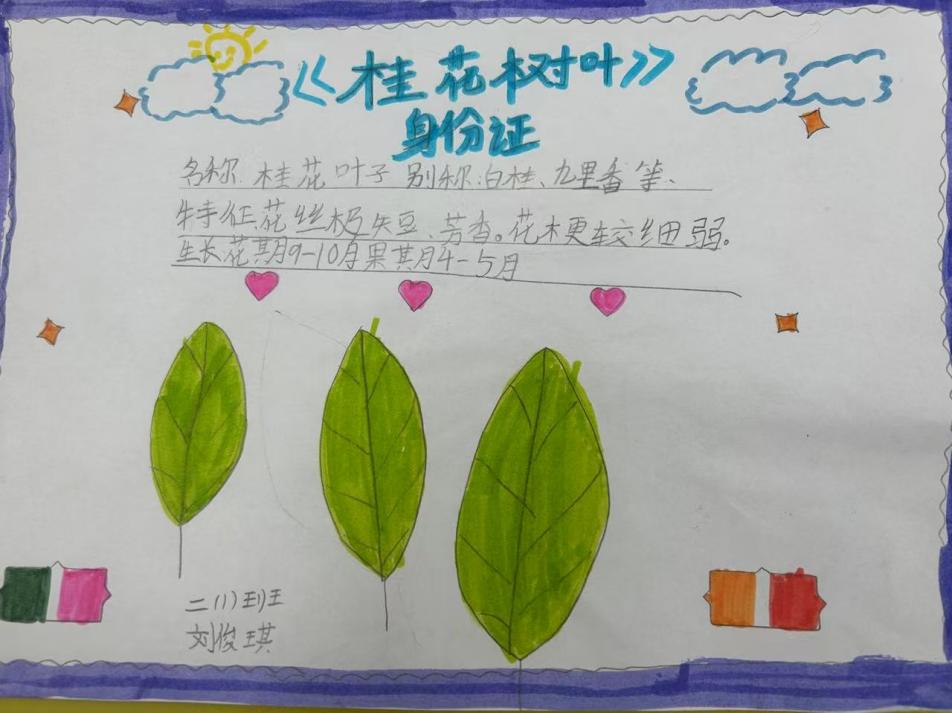 《桂花树叶》
身份证
名称:桂花叶子 别称:白桂、九里香等、
特征花丝极矢豆、芳香。花梗较细弱。
生长花期9-10月果其月4-5月
二(1)班
刘俊琪